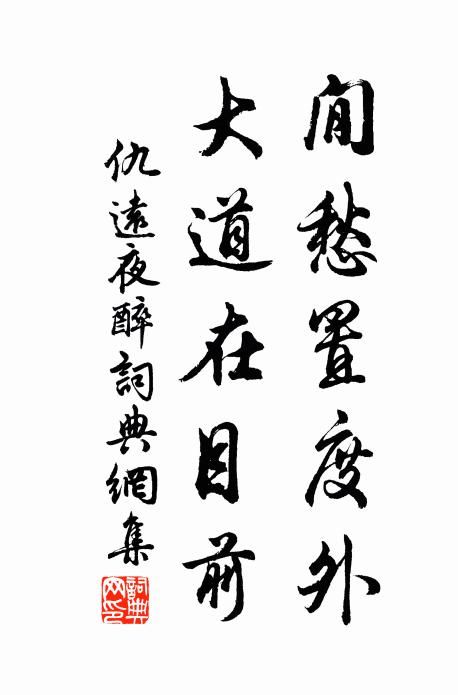 閒愁置度外
大道在目前
仇遠夜醉詞典網集
詞典网印